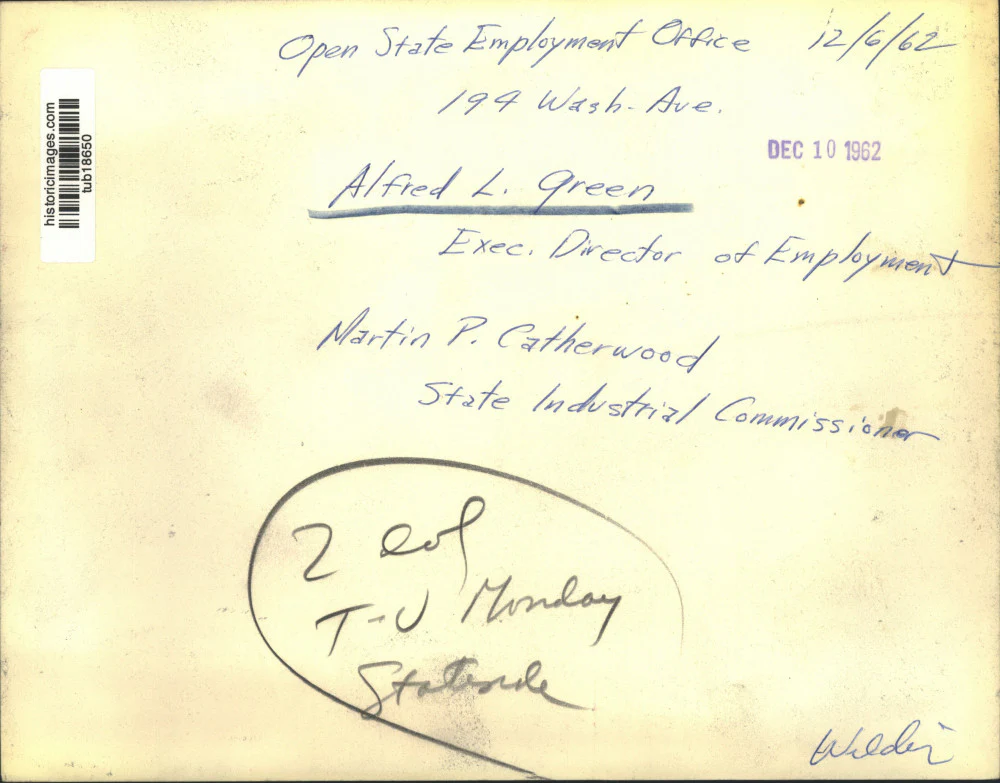 Open State Employment Office 12/6/62
194 Wash. Ave.
DEC 10 1962
Alfred L. Green
Exec. Director of Employment
Martin P. Catherwood
State Industrial Commissioner
historicimages.com
tub18650
2 col
T-U Monday
Statewide